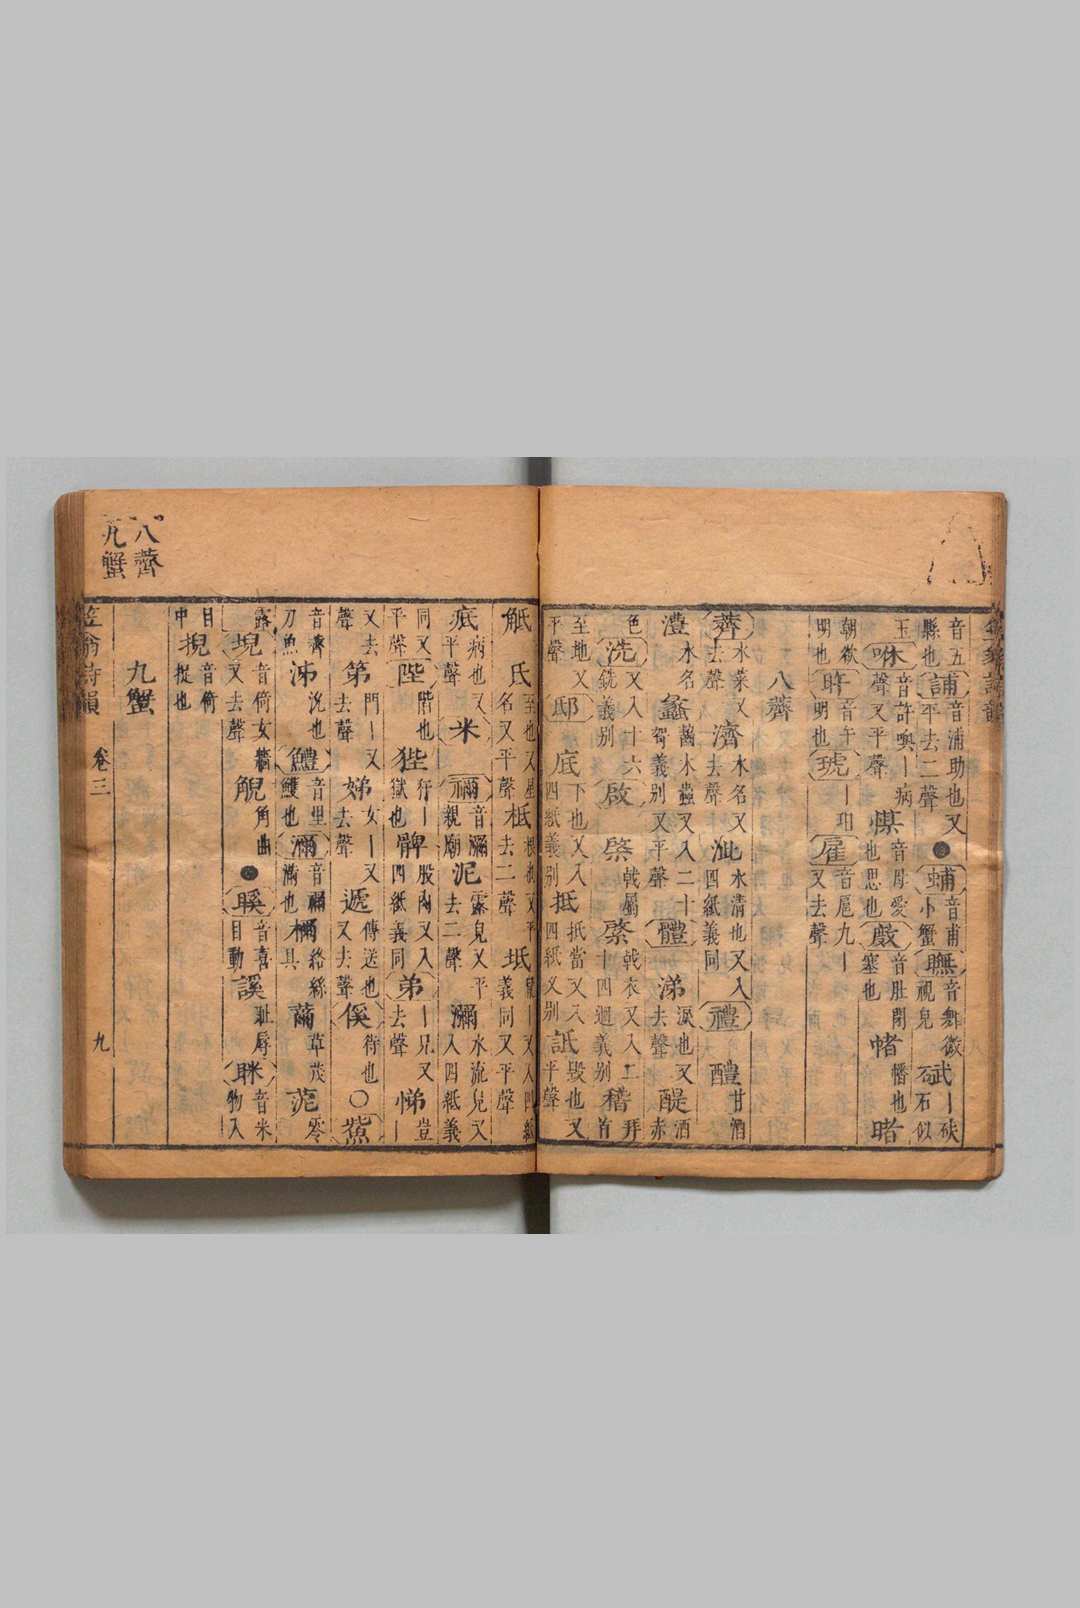 音五
縣也
誧 音浦助也又平去二聲
蜅 音甫小蟹
瞴 音舞微視皃
珷 石似玉
咻 音許噢丨病聲又平聲
㦆 音母愛也思也
㡿 音肚閉塞也
帾 幡也
暏 朝欲明也
旿 音午明也
琥 丨珀
雇 音扈九丨又去聲
八薺
薺 水菜又去聲
濟 水名又去聲
泚 水清也又入四紙義同
禮
醴 甘酒
澧 水名
蠡 齧木蟲又入二十哿義別又平聲
體
涕 淚也又去聲
醍 酒赤色
洗 又入十六銑義別
啟
棨 戟屬
綮 戟衣又入二十四迥義別
稽 拜首至地又平聲
邸
底 下也又入四紙義別
抵 抵當又入四紙義別
詆 毀也又平聲
觝
氐 至也又星名又平聲
柢 根也又平去二聲
坻
疧 病也又平聲
米
禰 音瀰親廟
泥 露皃又平去二聲
瀰 水流皃又入四紙義同又平聲
陛 階也
狴 犴丨獄也
髀 股內又入四紙義同
弟 丨兄又去聲
悌 豈丨又去聲
第 門丨又去聲
娣 女丨又去聲
遞 傳送也又去聲
傒 待也
鮆 音薺刀魚
泲 沇也
鱧 音里鱯也
濔 音禰滿也
檷 絡絲具
薾 草茂
苨 䒷露
堄 音倚女牆又去聲
觬 角曲
䁯 音喜目動
謑 恥辱
眯 音米物入目中
掜 音倚捉也
九蟹
笠翁詩韻
卷三
九
八薺
九蟹